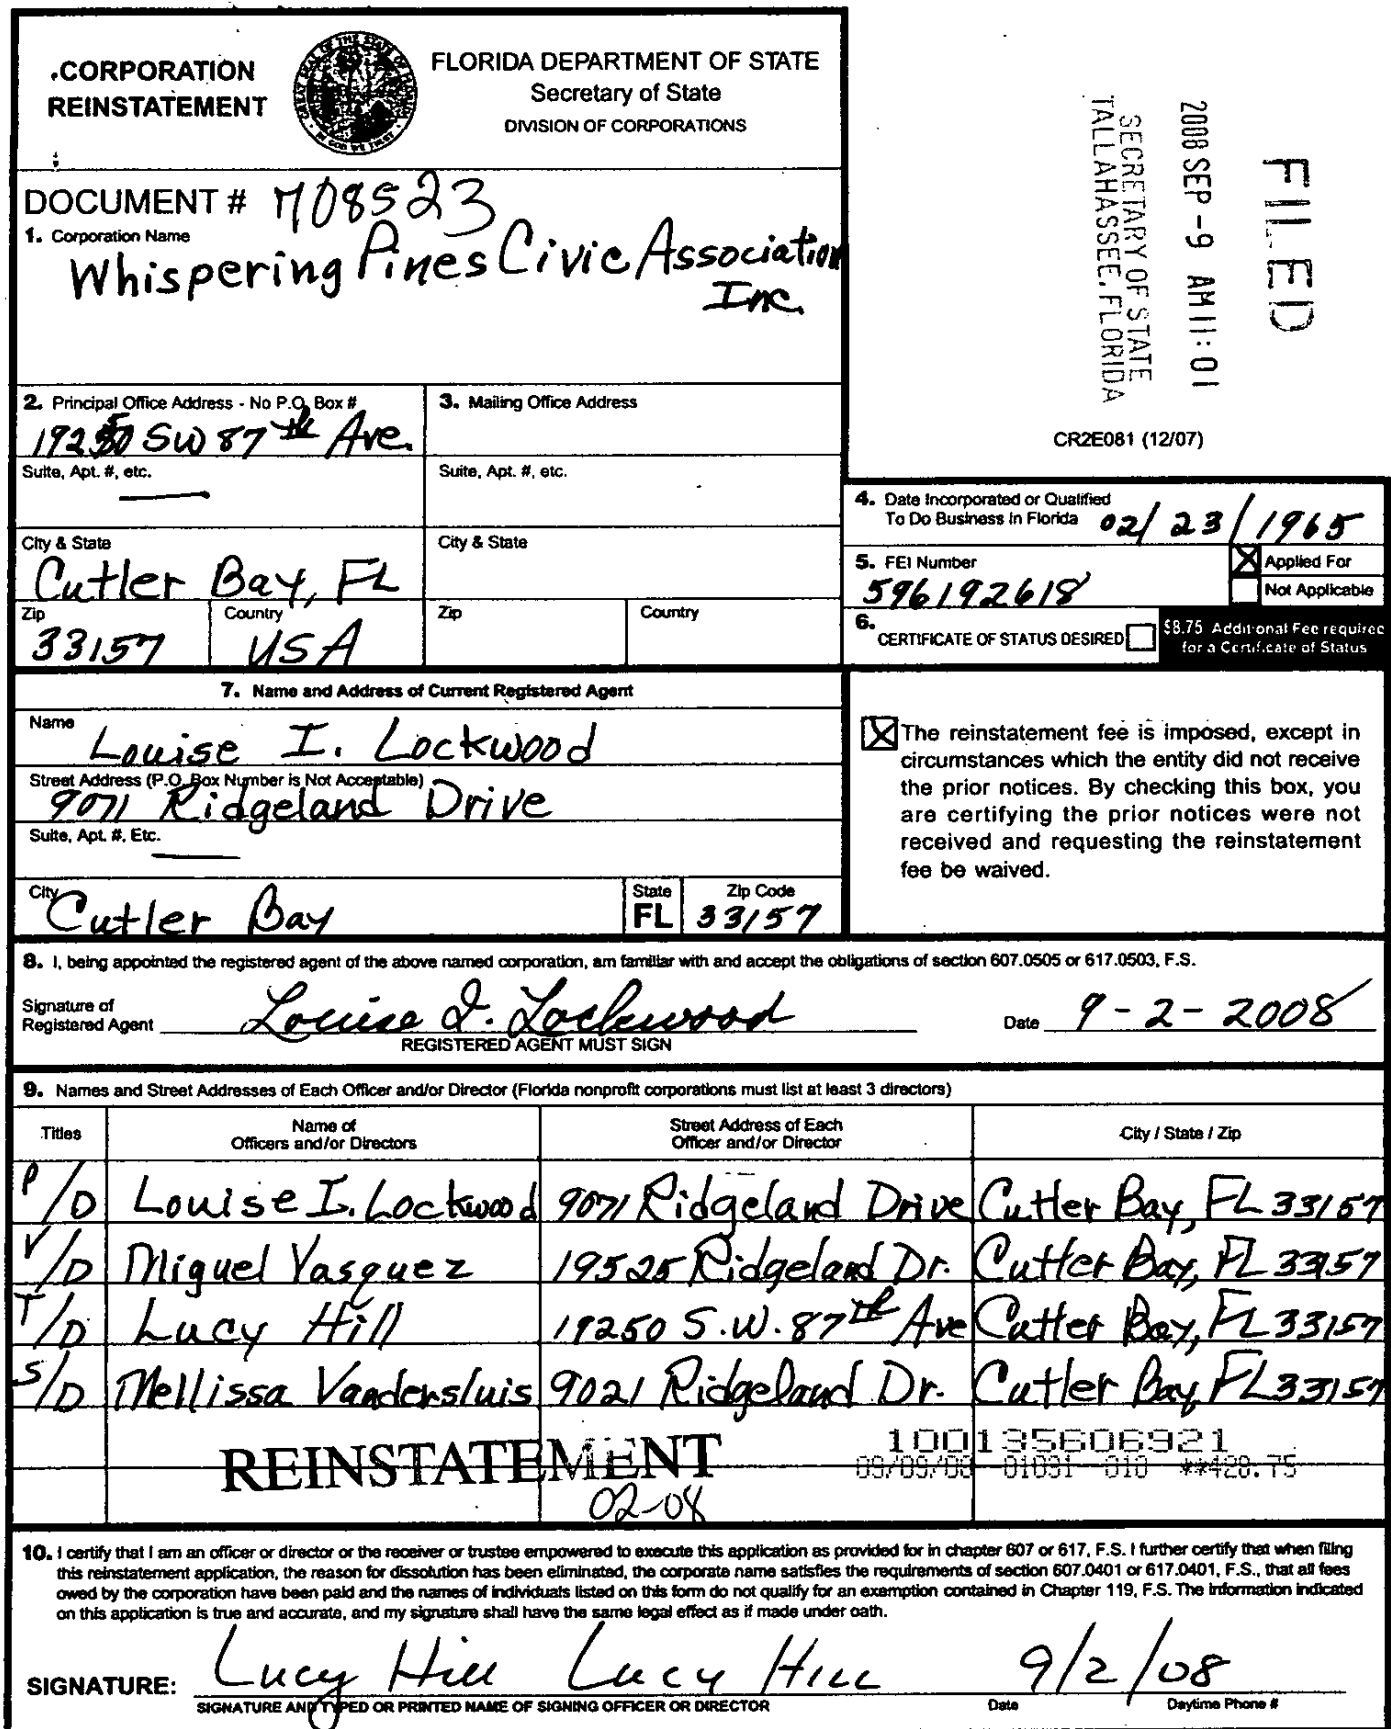 CORPORATION
REINSTATEMENT
FLORIDA DEPARTMENT OF STATE
Secretary of State
DIVISION OF CORPORATIONS
FILED
2008 SEP -9 AM 11:01
SECRETARY OF STATE
TALLAHASSEE, FLORIDA
DOCUMENT # 708523
1. Corporation Name
Whispering Pines Civic Association
Inc.
CR2E081 (12/07)
2. Principal Office Address - No P.O. Box #
19250 SW 87th Ave.
Suite, Apt. #, etc.
City & State
Cutler Bay, FL
Zip
33157
Country
USA
3. Mailing Office Address
Suite, Apt. #, etc.
City & State
Zip
Country
4. Date Incorporated or Qualified
To Do Business in Florida 02/23/1965
5. FEI Number
596192618
Applied For
Not Applicable
6. CERTIFICATE OF STATUS DESIRED
$8.75 Additional Fee required
for a Certificate of Status
7. Name and Address of Current Registered Agent
Name
Louise I. Lockwood
Street Address (P.O. Box Number is Not Acceptable)
9071 Ridgeland Drive
Suite, Apt. #, Etc.
City
Cutler Bay
State
FL
Zip Code
33157
The reinstatement fee is imposed, except in
circumstances which the entity did not receive
the prior notices. By checking this box, you
are certifying the prior notices were not
received and requesting the reinstatement
fee be waived.
8. I, being appointed the registered agent of the above named corporation, am familiar with and accept the obligations of section 607.0505 or 617.0503, F.S.
Signature of
Registered Agent Louise I. Lockwood Date 9-2-2008
REGISTERED AGENT MUST SIGN
9. Names and Street Addresses of Each Officer and/or Director (Florida nonprofit corporations must list at least 3 directors)
Titles
Name of
Officers and/or Directors
Street Address of Each
Officer and/or Director
City / State / Zip
P/D Louise I. Lockwood 9071 Ridgeland Drive Cutler Bay, FL 33157
V/D Miguel Vasquez 19525 Ridgeland Dr. Cutler Bay, FL 33157
T/D Lucy Hill 19250 S.W. 87th Ave Cutler Bay, FL 33157
S/D Mellissa Vandersluis 9021 Ridgeland Dr. Cutler Bay FL 33157
REINSTATEMENT
02-08
100135606921
09/09/08 01031 010 **428.75
10. I certify that I am an officer or director or the receiver or trustee empowered to execute this application as provided for in chapter 607 or 617, F.S. I further certify that when filing
this reinstatement application, the reason for dissolution has been eliminated, the corporate name satisfies the requirements of section 607.0401 or 617.0401, F.S., that all fees
owed by the corporation have been paid and the names of individuals listed on this form do not qualify for an exemption contained in Chapter 119, F.S. The information indicated
on this application is true and accurate, and my signature shall have the same legal effect as if made under oath.
SIGNATURE: Lucy Hill Lucy Hill 9/2/08
SIGNATURE AND TYPED OR PRINTED NAME OF SIGNING OFFICER OR DIRECTOR
Date
Daytime Phone #